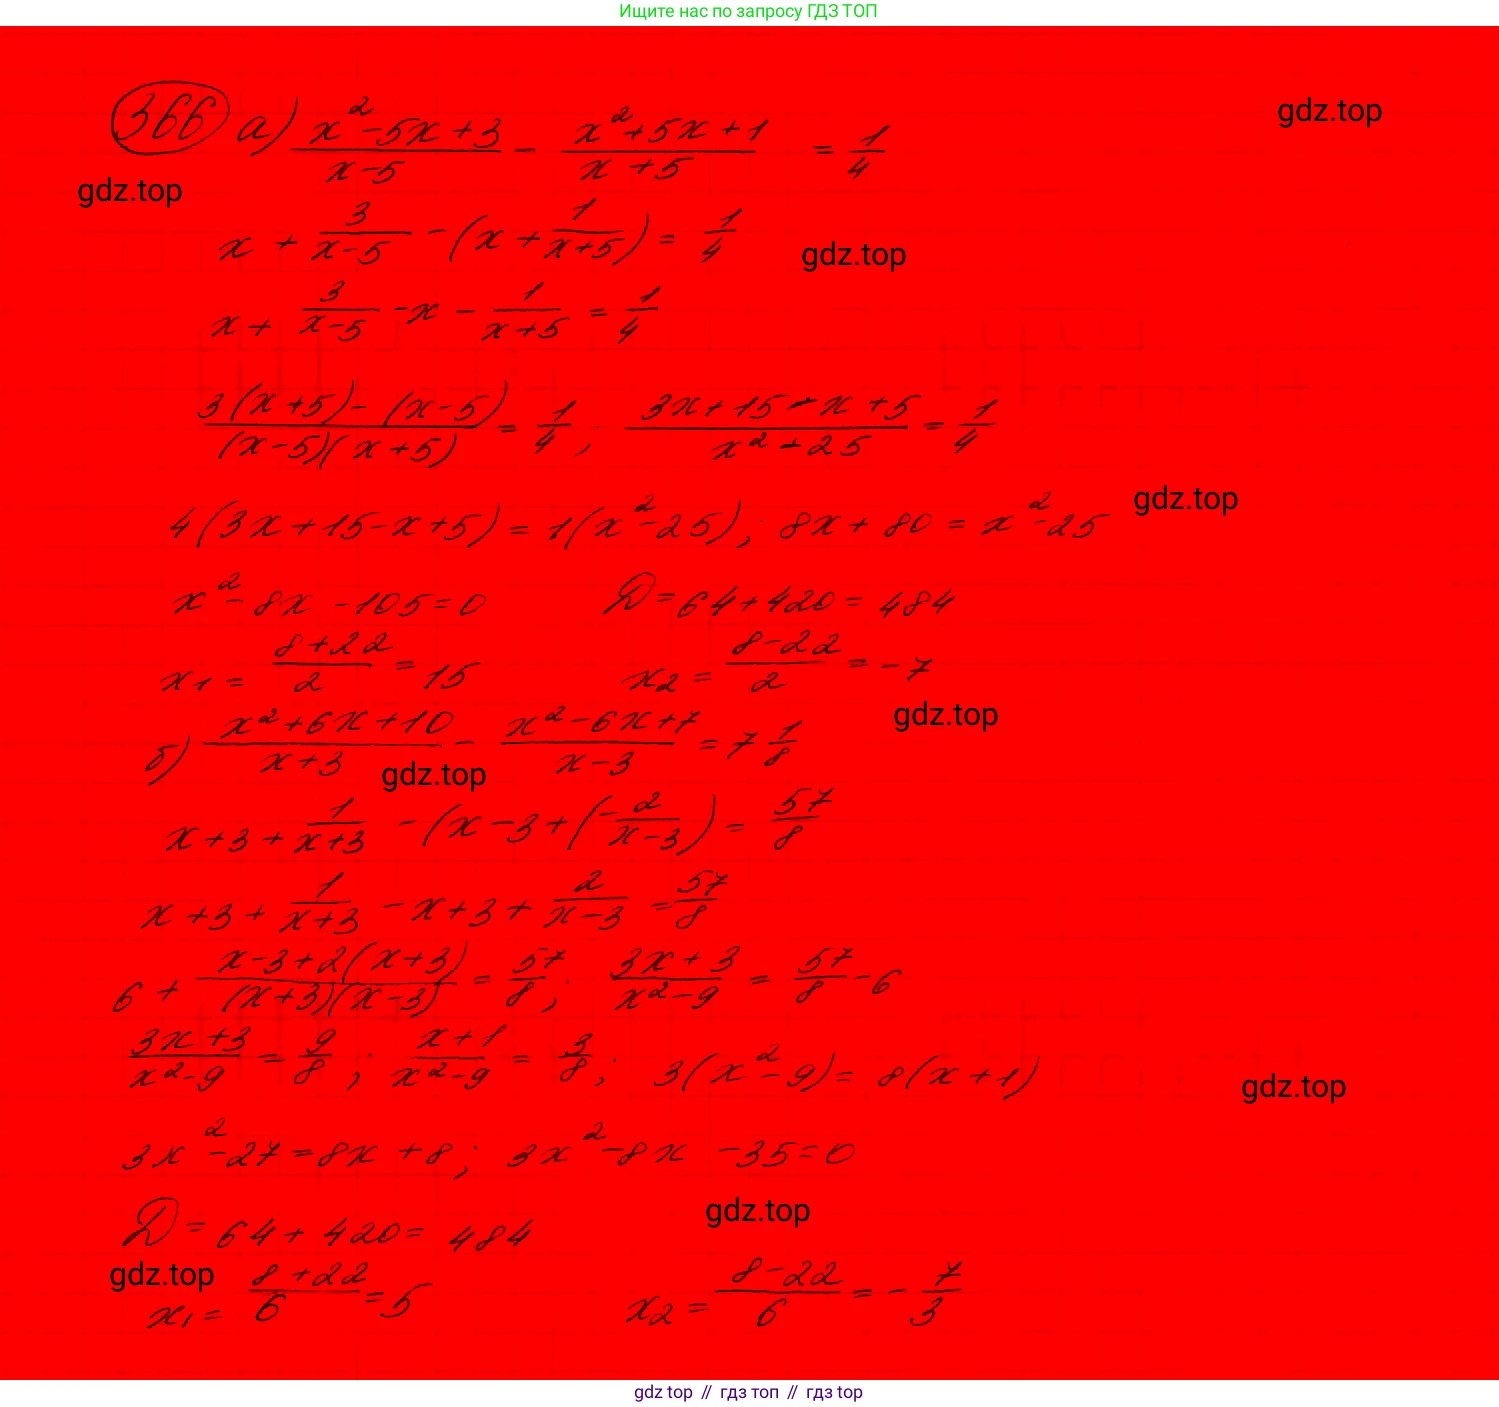 Ищите нас по запросу ГДЗ ТОП
366 а) (x²-5x+3)/(x-5) - (x²+5x+1)/(x+5) = 1/4
gdz.top
gdz.top
x + 3/(x-5) - (x + 1/(x+5)) = 1/4
gdz.top
x + 3/(x-5) - x - 1/(x+5) = 1/4
(3(x+5) - (x-5))/((x-5)(x+5)) = 1/4 ; (3x+15-x+5)/(x²-25) = 1/4
gdz.top
4(3x+15-x+5) = 1(x²-25) ; 8x+80 = x²-25
x²-8x-105=0 D=64+420=484
x1 = (8+22)/2 = 15 x2 = (8-22)/2 = -7
gdz.top
б) (x²+6x+10)/(x+3) - (x²-6x+7)/(x-3) = 7 1/8
gdz.top
x+3+ 1/(x+3) - (x-3+(- 2/(x-3)) = 57/8
x+3+ 1/(x+3) - x+3+ 2/(x-3) = 57/8
6 + (x-3+2(x+3))/((x+3)(x-3)) = 57/8 ; (3x+3)/(x²-9) = 57/8 - 6
(3x+3)/(x²-9) = 9/8 ; (x+1)/(x²-9) = 3/8 ; 3(x²-9) = 8(x+1)
gdz.top
3x²-27=8x+8 ; 3x²-8x-35=0
gdz.top
D = 64+420= 484
gdz.top
x1 = (8+22)/6 = 5 x2 = (8-22)/6 = - 7/3
gdz top // гдз топ // гдз top